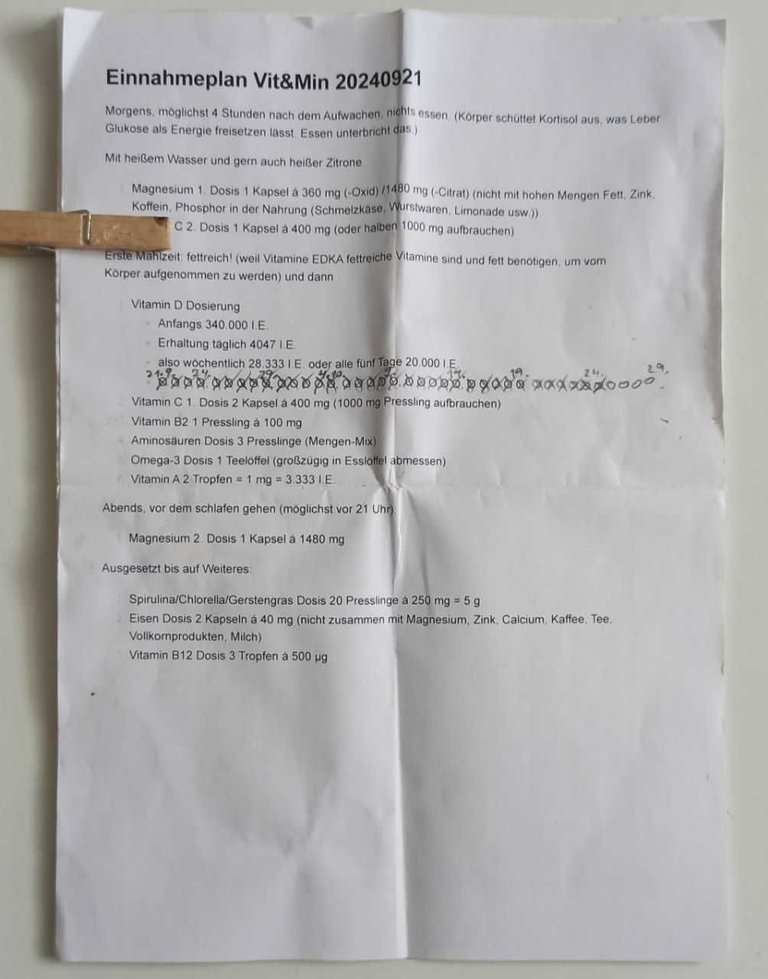 Einnahmeplan Vit&Min 20240921
Morgens, möglichst 4 Stunden nach dem Aufwachen, nichts essen. (Körper schüttet Kortisol aus, was Leber
Glukose als Energie freisetzen lässt. Essen unterbricht das.)
Mit heißem Wasser und gern auch heißer Zitrone
Magnesium 1. Dosis 1 Kapsel á 360 mg (-Oxid) /1480 mg (-Citrat) (nicht mit hohen Mengen Fett, Zink,
Koffein, Phosphor in der Nahrung (Schmelzkäse, Wurstwaren, Limonade usw.))
C 2. Dosis 1 Kapsel á 400 mg (oder halben 1000 mg aufbrauchen)
Erste Mahlzeit: fettreich! (weil Vitamine EDKA fettreiche Vitamine sind und fett benötigen, um vom
Körper aufgenommen zu werden) und dann
Vitamin D Dosierung
Anfangs 340.000 I.E.
Erhaltung täglich 4047 I.E.
also wöchentlich 28.333 I.E. oder alle fünf Tage 20.000 I.E.
21.9. 24. 29. 9. 14. 19. 24. 29.
Vitamin C 1. Dosis 2 Kapsel á 400 mg (1000 mg Pressling aufbrauchen)
Vitamin B2 1 Pressling á 100 mg
Aminosäuren Dosis 3 Presslinge (Mengen-Mix)
Omega-3 Dosis 1 Teelöffel (großzügig in Esslöffel abmessen)
Vitamin A 2 Tropfen = 1 mg = 3.333 I.E.
Abends, vor dem schlafen gehen (möglichst vor 21 Uhr):
Magnesium 2. Dosis 1 Kapsel á 1480 mg
Ausgesetzt bis auf Weiteres:
Spirulina/Chlorella/Gerstengras Dosis 20 Presslinge á 250 mg = 5 g
2. Eisen Dosis 2 Kapseln á 40 mg (nicht zusammen mit Magnesium, Zink, Calcium, Kaffee, Tee,
Vollkornprodukten, Milch)
Vitamin B12 Dosis 3 Tropfen á 500 µg